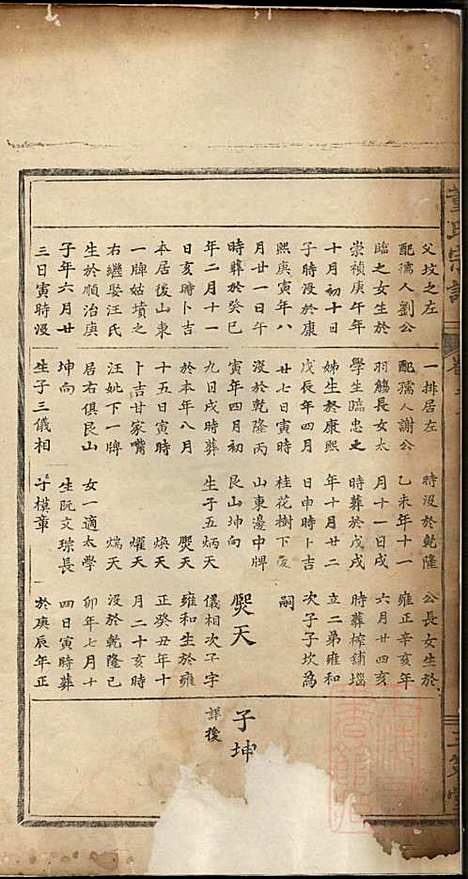 父坟之左
配孺人劉公
臨之女生於
崇禎庚午年
十月初十日
子時没於康
熙庚寅年八
月廿一日午
時葬於癸巳
年二月十一
日亥時卜吉
本居後山東
一牌姑墳之
右繼娶汪氏
生於順治庚
子年六月廿
三日寅時没
一排居左
配孺人謝公
羽觴長女太
學生臨忠之
姊生於康熙
戊辰年四月
廿七日寅時
没於乾隆丙
寅年四月初
九日戌時葬
於本年八月
十五日寅時
卜吉甘家嘴
汪妣下一牌
居右俱艮山
坤向
生子三儀相
時没於乾隆
乙未年十一
月十一日戌
時葬於戊戌
年十月廿二
日申時卜吉
桂花樹下
山東邊中牌
艮山坤向
生子五炳天
煚天
燿天
煓天
女一適太學
生阮文琮長
子模章
公長女生於
雍正辛亥年
六月廿四亥
時葬樟鋪堖
立二弟雍和
次子子坎為
嗣
煚天
儀相次子字
雍和生於雍
正癸丑年十
月二十亥時
没於乾隆己
卯年七月十
四日寅時葬
於庚辰年正
子坤
詳後